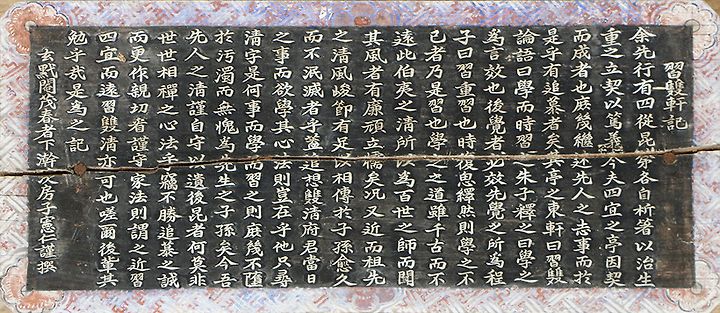 習雙軒記
余先行有四從昆弟各自析著以治生
重之立契以篤義今夫四宜之亭因契
而成者也庶幾繼述先人之志事而於
是乎有追慕者矣其亭之東軒曰習雙
論語曰學而時習之朱子釋之曰學之
爲言效也後覺者必效先覺之所爲程
子曰習重習也時復思繹然則學之不
已者乃是習也學之之道雖千古而不
遠此伯夷之清所以爲百世之師而聞
其風者有廉頑立懦矣况又近而祖先
之清風峻節有足以相傳於子孫愈久
而不泯滅者乎蓋追想雙清府君當日
之事而欲學其心法則豈在乎他只尋
清字是何事而學而習之則庶幾不墮
於污濁而無愧爲先生之子孫矣今吾
先人之清謹自守以遺後昆者何莫非
世世相禪之心法乎竊不勝追慕之誠
而更作親切者謹守家法則謂之近習
四宜而遠習雙清亦可也嗟爾後輩其
勉乎哉是爲之記
玄黓閹茂春者下澣 房子憲仁謹撰